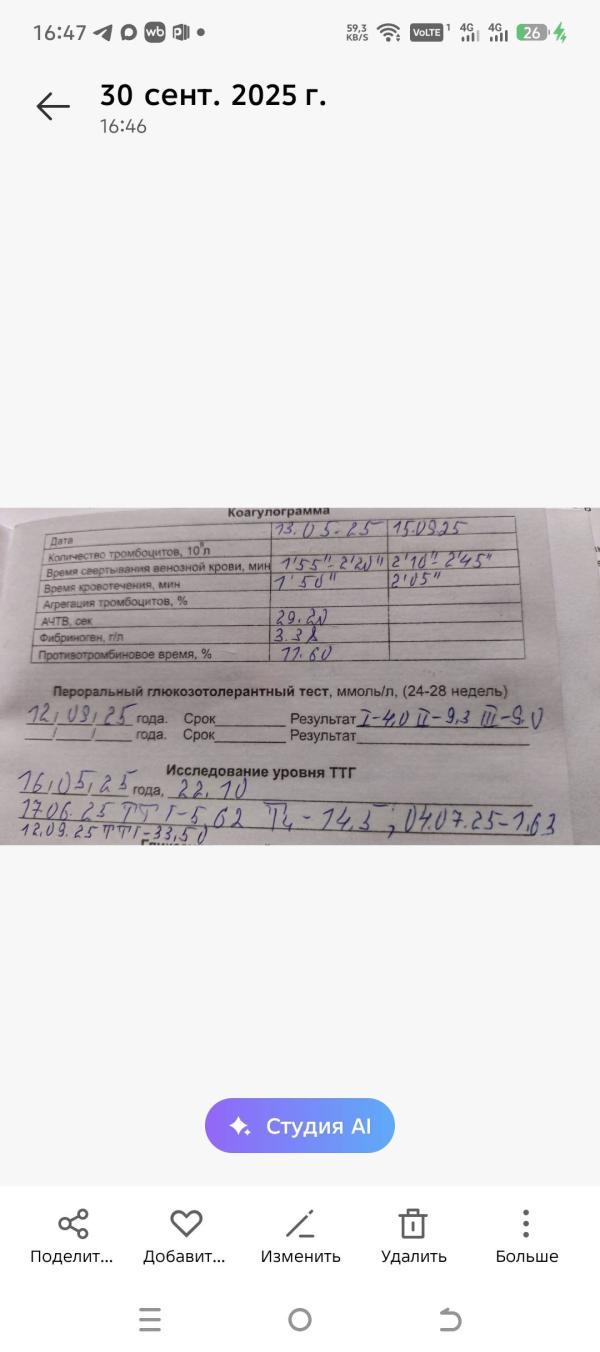 16:47 wb 59,3 KB/S VoLTE 1 4G 4G 26
30 сент. 2025 г.
16:46
Коагулограмма
Дата 13.05.25 15.09.25
Количество тромбоцитов, 10⁹л
Время свертывания венозной крови, мин 1'55"-2'20" 2'10"-2'45"
Время кровотечения, мин 1'50" 2'05"
Агрегация тромбоцитов, %
АЧТВ, сек 29.20
Фибриноген, г/л 3.38
Противотромбиновое время, % 11.60
Пероральный глюкозотолерантный тест, ммоль/л, (24-28 недель)
12/09/25 года. Срок Результат I-4,0 II-9,3 III-9.0
/ / года. Срок Результат
Исследование уровня ТТГ
16/05/25 года, 22.10
17.06.25 ТТГ-5,62 T4-14,5; 04.07.25-1,63
12.09.25 ТТГ-33,50
Студия AI
Поделит... Добавит... Изменить Удалить Больше